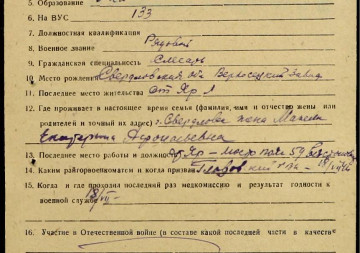 5. Образование
6. На ВУС 133
7. Должностная квалификация
8. Военное звание Рядовой
9. Гражданская специальность Слесарь
10. Место рождения Свердловская обл Верхо завод
11. Последнее место жительства ст Яр
12. Где проживает в настоящее время семья (фамилия, имя и отчество жены или
родителей и точный их адрес) г. Свердловск жена
Екатерина
13. Последнее место работы и должность ст Яр
14. Каким райгорвоенкоматом и когда призван Глазовский
15. Когда и где проходил последний раз медкомиссию и результат годности к
военной службе
16. Участие в Отечественной войне (в составе какой последней части в качестве